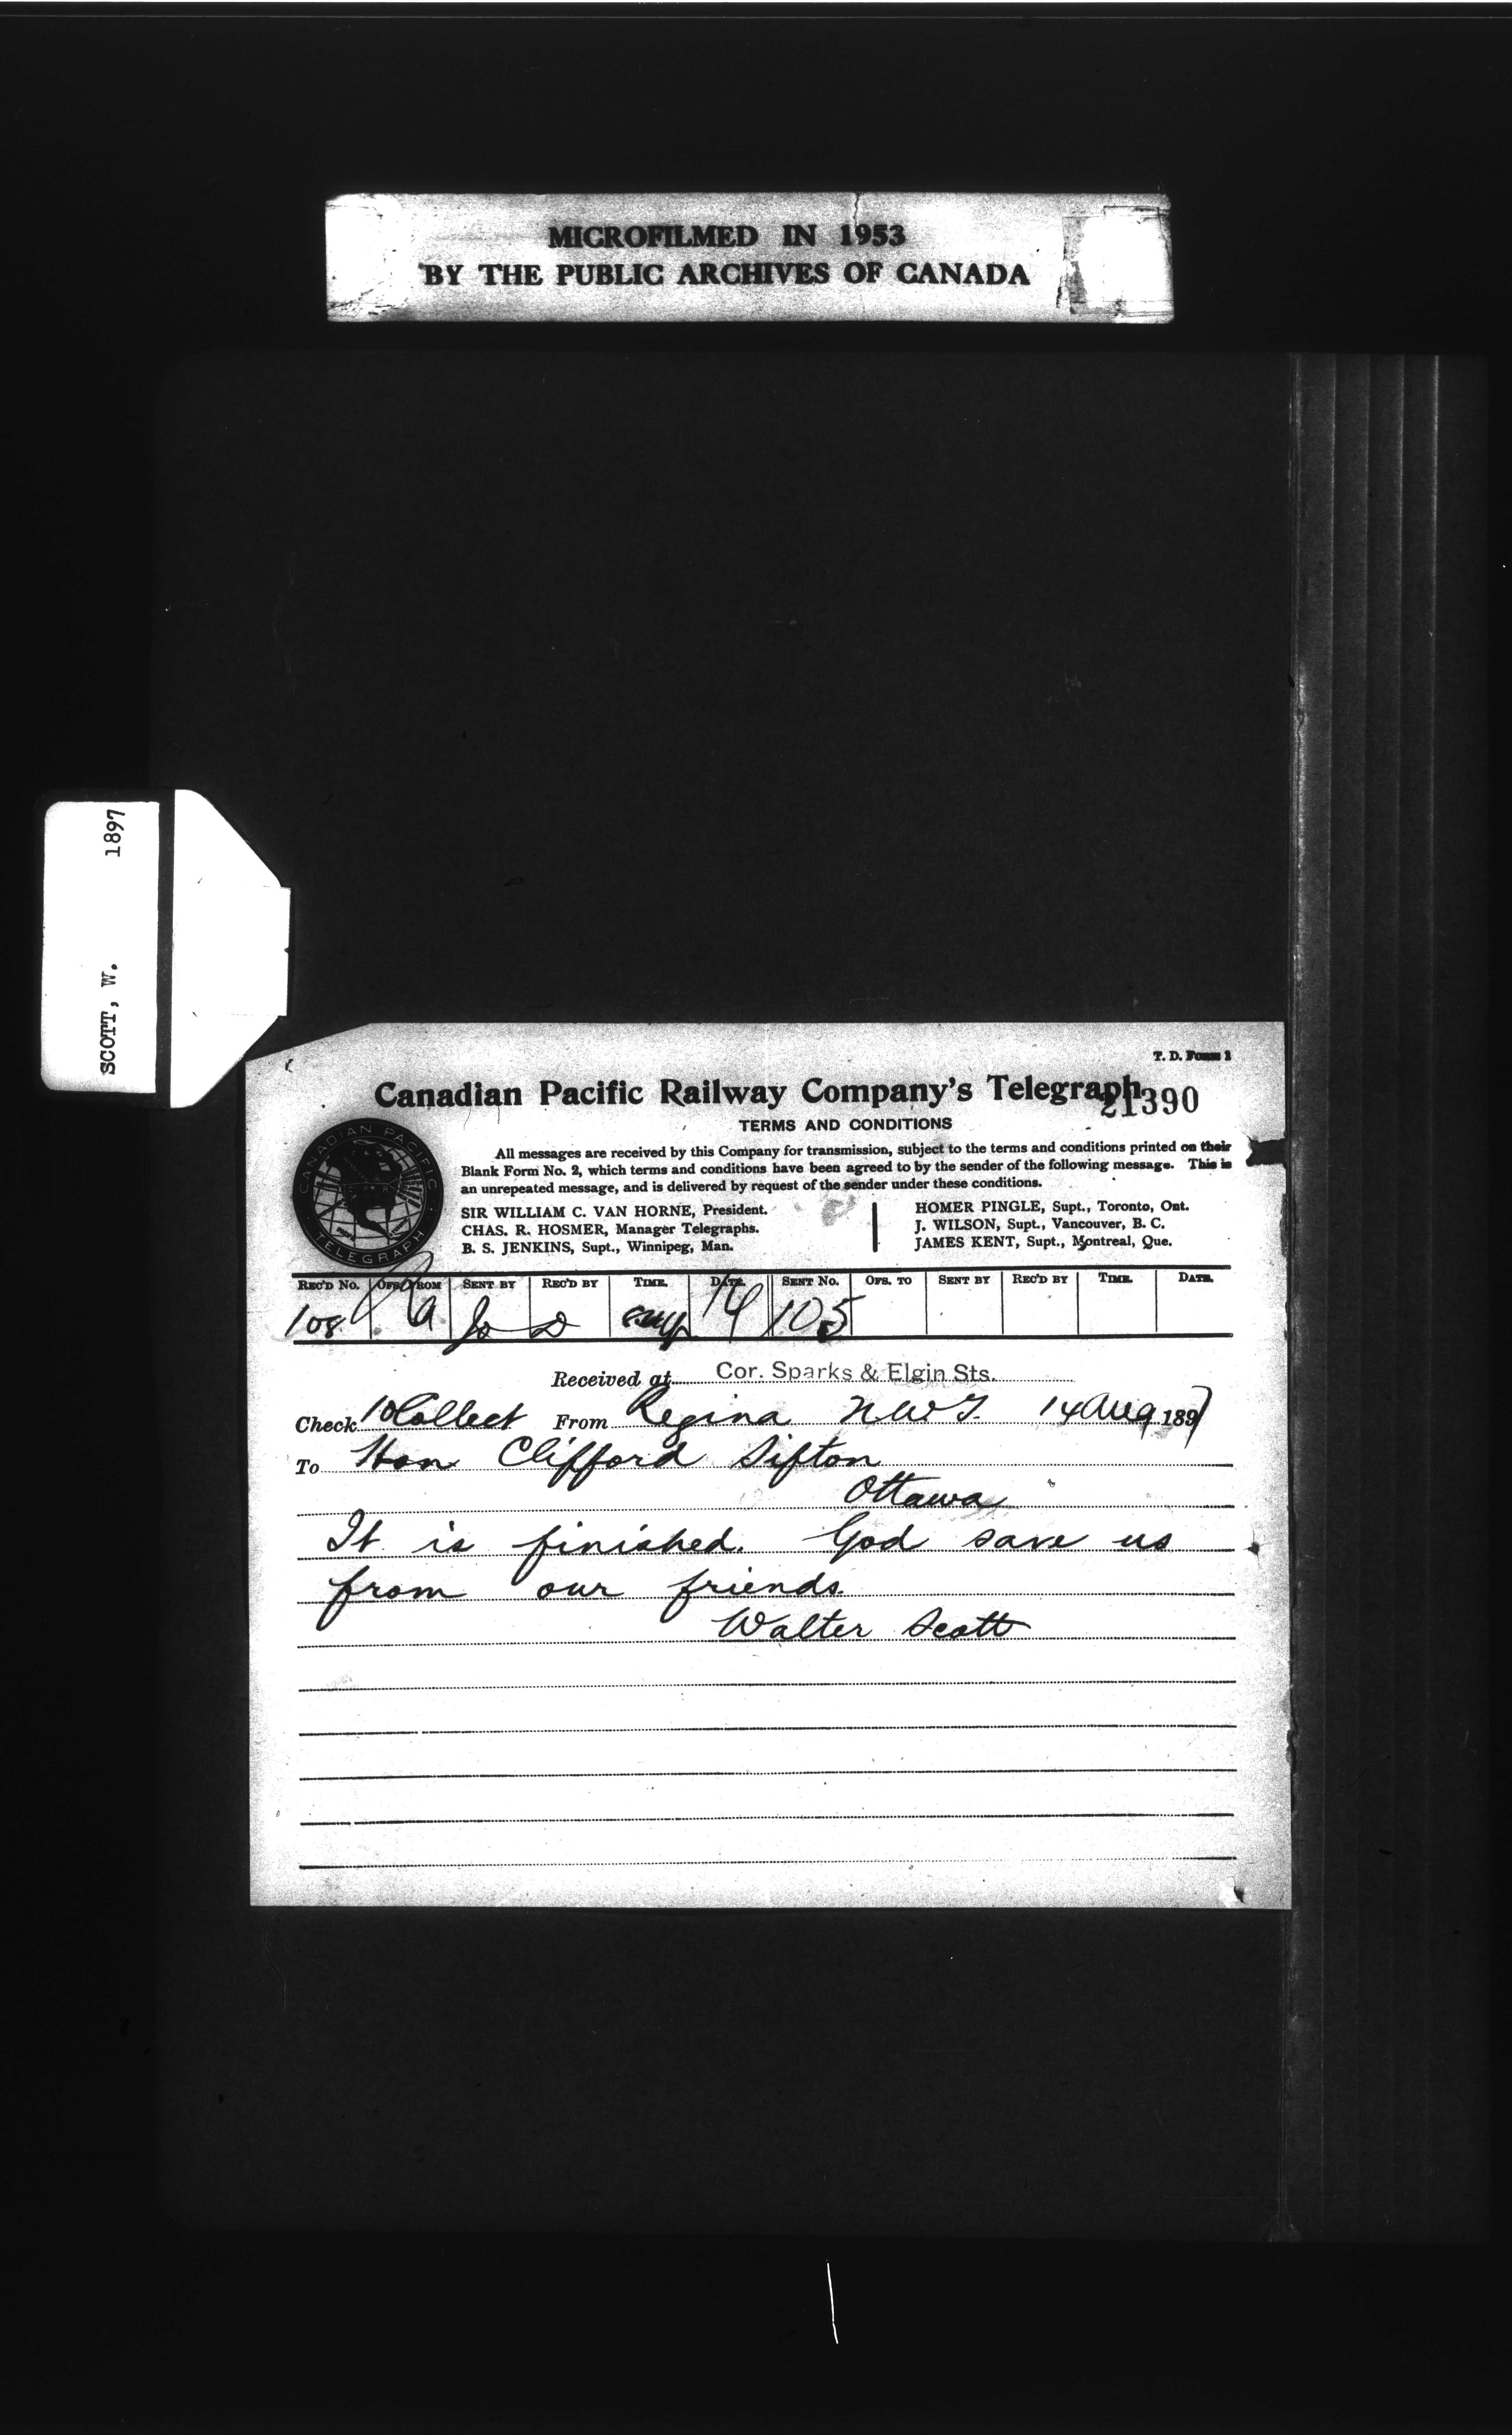 MICROFILMED IN 1953
BY THE PUBLIC ARCHIVES OF CANADA
SCOTT, W. 1897
T. D. Form 1
Canadian Pacific Railway Company's Telegraph
21390
TERMS AND CONDITIONS
All messages are received by this Company for transmission, subject to the terms and conditions printed on their
Blank Form No. 2, which terms and conditions have been agreed to by the sender of the following message. This is
an unrepeated message, and is delivered by request of the sender under these conditions.
SIR WILLIAM C. VAN HORNE, President.
CHAS. R. HOSMER, Manager Telegraphs.
B. S. JENKINS, Supt., Winnipeg, Man.
HOMER PINGLE, Supt., Toronto, Ont.
J. WILSON, Supt., Vancouver, B. C.
JAMES KENT, Supt., Montreal, Que.
CANADIAN PACIFIC
TELEGRAPH
REC'D No. OFS. FROM SENT BY REC'D BY TIME. DATE. SENT No. OFS. TO SENT BY REC'D BY TIME. DATE.
108 Ra 14 105
Received at Cor. Sparks & Elgin Sts.
Check 10 Collect From Regina N.W.T. 14 Aug 1897
To Hon Clifford Sifton
Ottawa
It is finished. God save us
from our friends.
Walter Scott